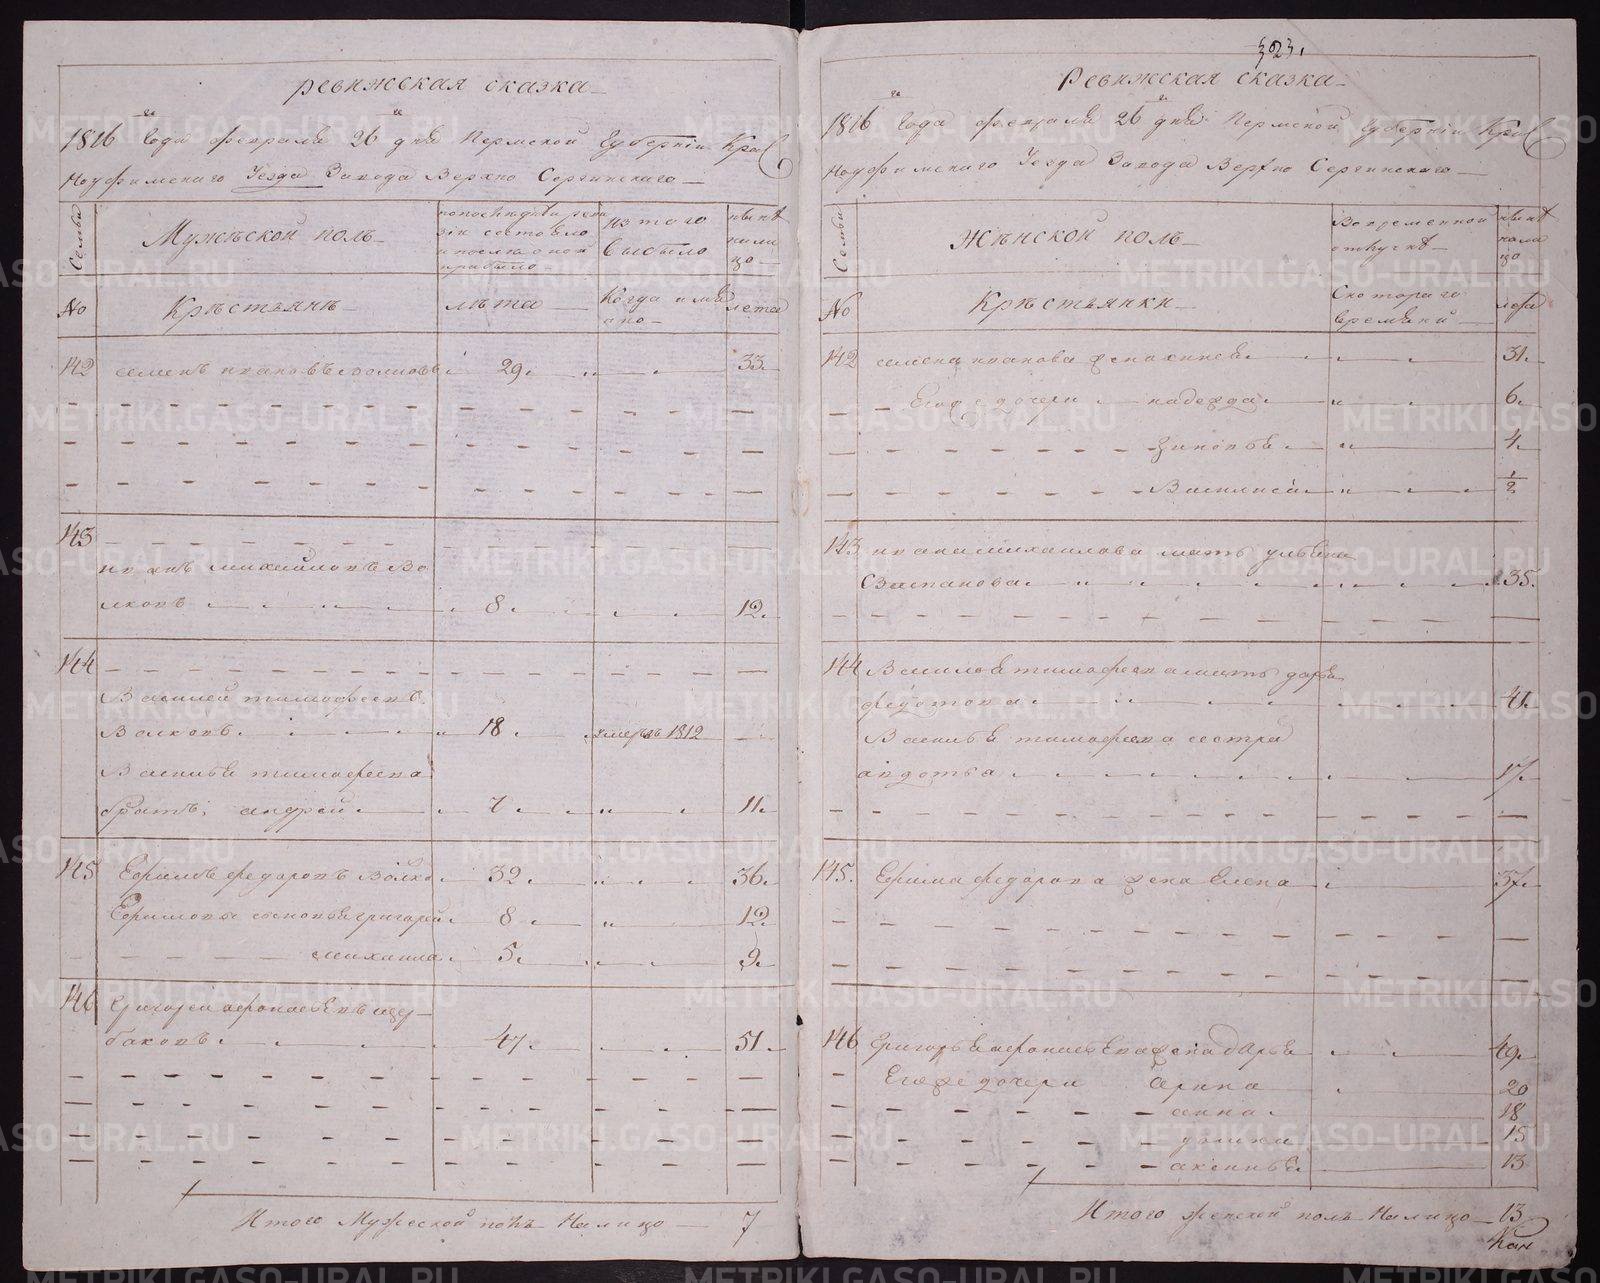 ревижская сказка
1816 го Года февраля 26 го дня Пермской Губернiи Крас
ноуфимскаго Уезда Завода Верхно Сергинскаго
Семьи
Мужеской полъ
по последней реви
зiи состояло
и после оной
прибыло
из того
выбыло
ныне
нали
цо
No
Крестьяне
лета
Когда имя
нно
лета
142 семенъ ивановъ волковъ 29 33
143
иванъ михайловъ Во
лковъ 8 12
144
Василей тимофеевъ
Волковъ 18 умеръ 1812
Василья тимофеева
братъ андрей 7 11
145 Ефимъ федоровъ Волко 32 36
Ефимовы сыновья григорей 8 12
михаила 5 9
146 Григорей афонасьевъ щер
баковъ 47 51
Итого Мужеской полъ На лицо 7
323
Ревижская сказка
1816 го Года февраля 26 го дня Пермской Губернiи Крас
ноуфимскаго Уезда Завода Верхно Сергинскаго
Семьи
Женской полъ
Во временной
отлучке
ныне
нали
цо
No
Крестьянки
С котораго
времяни
лета
142 семена иванова жена 31
Его же дочери надежда 6
Зиновья 4
Василиса 1/2
143 ивана михаилова мать ульяна
Степанова 35
144 Василья тимофеева мать дарья
федотова 41
Василья тимофеева сестра
авдотья 17
145 Ефима федорова жена Елена 37
146 Григорья афонасьева жена дарья 49
Его же дочери Арина 20
анна 18
15
аксинья 13
Итого женской полъ На лицо 13